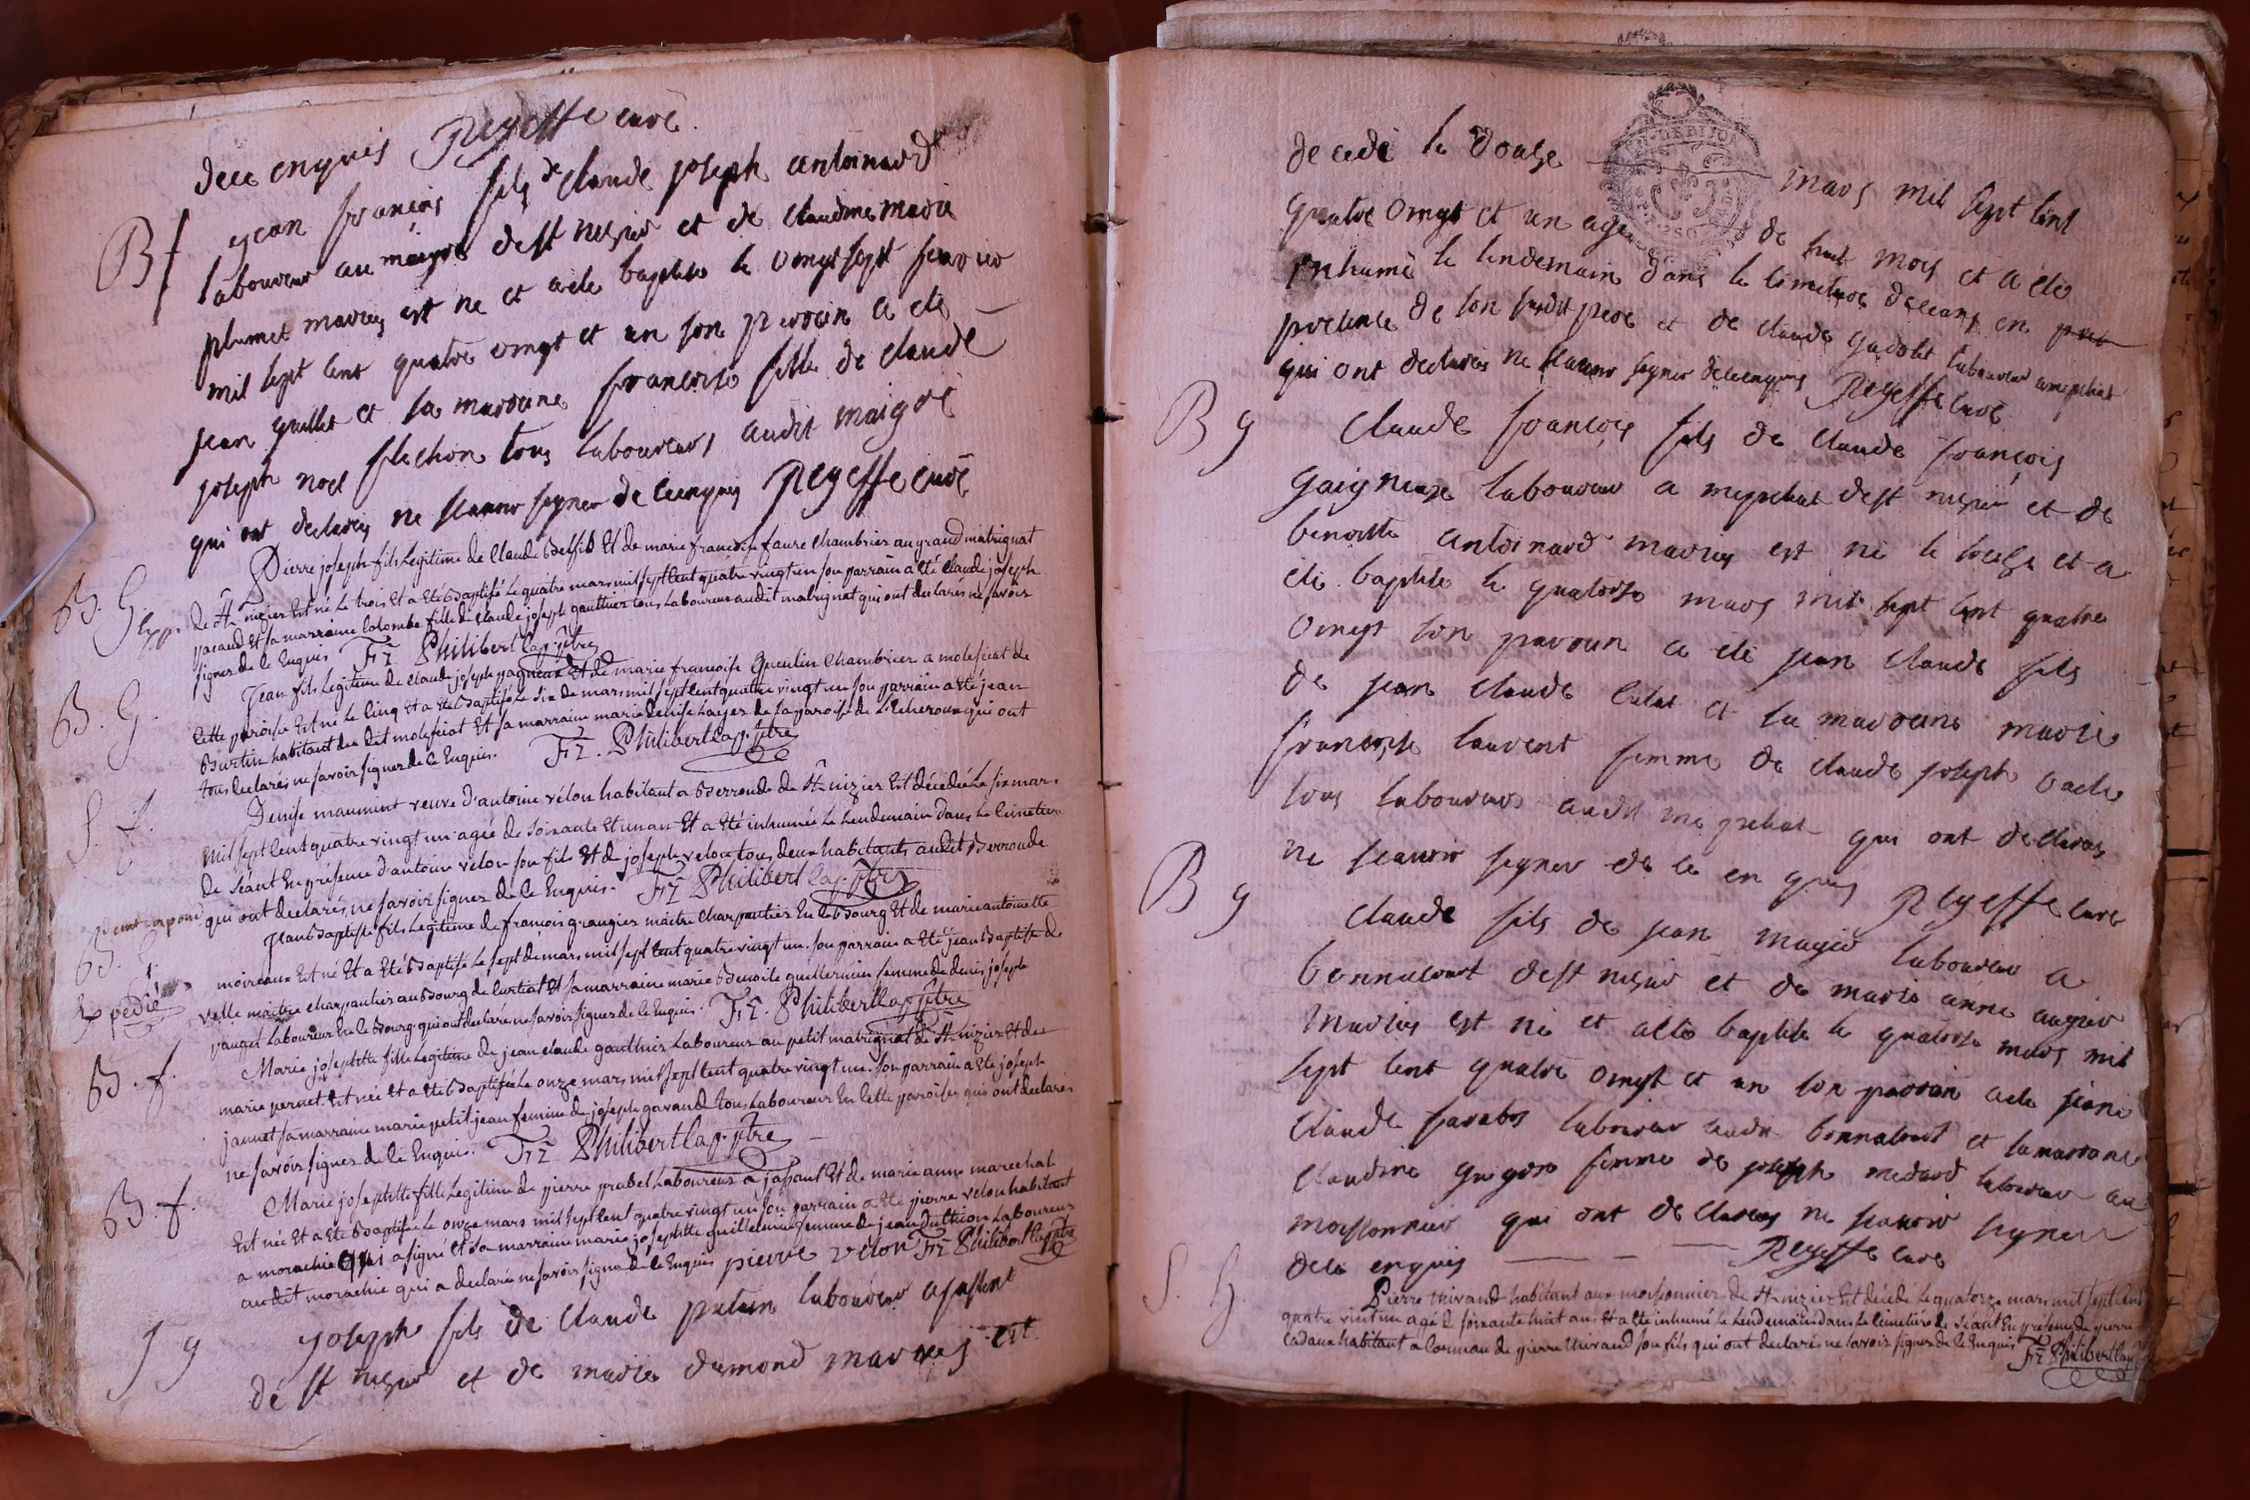 dece enquis Reyeffe curé
B f
jean françois fils de claude joseph antoinard
laboureur au maigre de st nizier et de claudine marie
plumet mariés est né et a été baptisé le vingt sept fevrier
mil sept cent quatre vingt et un son parrain a été
jean guillet et la marraine françoise fille de claude
joseph noel flechon tous laboureurs audit maigre
qui ont declarés ne scavoir signer de ce enquis Reyeffe curé
B. G.
Pierre joseph fils Legitime de Claude Et de marie françoise faure Chambrier au grand matrignat
de St nizier Est né Le trois Et a Eté Baptisé Le quatre mars mil sept Cent quatre vingt un son parrain a Eté Claude joseph
pacaud Et sa marraine Colombe fille de Claude joseph gauthier tous Laboureurs audit matrignat qui ont declarés ne savoir
signer de Ce Enquis. Fr Philibert Cap. ptre
B. G.
Jean fils Legitime de Claude joseph pagneux Et de marie françoise Chambrier a molefciat de
Cette paroisse Est né Le Cinq Et a Eté Baptisé Le Six de mars mil sept Cent quatre vingt un son parrain a Eté jean
Burtin habitant du dit molefciat Et sa marraine marie denise de La paroisse de qui ont
tous declarés ne savoir signer de Ce Enquis. Fr. Philibert Cap. ptre
S. f.
Denise maumint veuve d'antoine vélon habitant a Bverronde de St nizier Est décedée Le six mars
mil sept Cent quatre vingt un agée de soixante Et un an Et a Eté inhumée Le Lendemain dans Le Cimetiere
de Séant En présence d'antoine vélon son fils Et de joseph velon tous deux habitants audit Bverronde
qui ont declarés ne savoir signer de Ce Enquis. Fr Philibert Cap. ptre
B. G.
Expedié
jean Baptiste fils Legitime de françois grangier maitre Charpentier En Ce Bourg Et de marie antoinette
moiroux Est né Et a Eté Baptisé Le sept de mars mil sept Cent quatre vingt un. son parrain a Eté jean Baptiste de
velle maitre Charpentier au Bourg de Curtiat Et sa marraine marie Benoite guillermin femme de denis joseph
pauget Laboureur En Ce Bourg qui ont declaré ne savoir signer de Ce Enquis. Fr. Philibert Cap. ptre
B. f.
Marie josephtte fille Legitime de jean Claude gauthier Laboureur au petit matrignat de St nizier Et de
marie pernet Est née Et a Eté Baptisée Le onze mars mil sept Cent quatre vingt un. son parrain a Eté joseph
jannet sa marraine marie petit jean femme de joseph gavand tous Laboureurs En Cette paroisse qui ont declarés
ne savoir signer de Ce Enquis. Fr Philibert Cap. ptre
B. f.
Marie josephtte fille Legitime de pierre prabel Laboureur a jassant Et de marie anne marechal
Est née Et a Eté Baptisée Le onze mars mil sept Cent quatre vingt un son parrain a Eté pierre velon habitant
a morachie qui a signé Et sa marraine marie josephtte guillermin femme de jean Laboureur
audit morachie qui a declaré ne savoir signer de Ce Enquis pierre vélon Fr Philibert Cap ptre
S g
joseph fils de claude putin laboureur a jassant
de st nizier et de marie dumond mariés est
decedé le douze mars mil sept cent
quatre vingt et un agé de huit mois et a été
inhumé le lendemain dans le cimetiere de ceans en
presence de son susdit pere et de claude laboureur a
qui ont declarés ne scavoir signer de ce enquis Reyeffe curé
B g
Claude françois fils de claude françois
gaigneux laboureur a de st nizier et de
benoitte antoinard mariés est né le treize et a
été baptisé le quatorze mars mil sept cent quatre
vingt son parrain a été jean claude fils
de jean claude et la marraine marie
françoise laurent femme de claude joseph
tous laboureurs audit qui ont declarés
ne scavoir signer de ce en quis Reyeffe curé
B g
Claude fils de jean laboureur a
bonnacourt de st nizier et de marie anne
mariés est né et a été baptisé le quatorze mars mil
sept cent quatre vingt et un son parrain a été jean
claude laboureur audit bonnacourt et la marraine
claudine femme de joseph medard laboureur au
moissonnier qui ont declarés ne scavoir signer
de ce enquis Reyeffe curé
S. h.
Pierre habitant aux moissonnier de St nizier Est décedé Le quatorze mars mil sept Cent
quatre vingt un agé de soixante huit ans Et a Eté inhumé Le Lendemain dans Le Cimetiere de Séant En presence de pierre
habitant a de pierre son fils qui ont declaré ne savoir signer de Ce Enquis Fr Philibert Cap